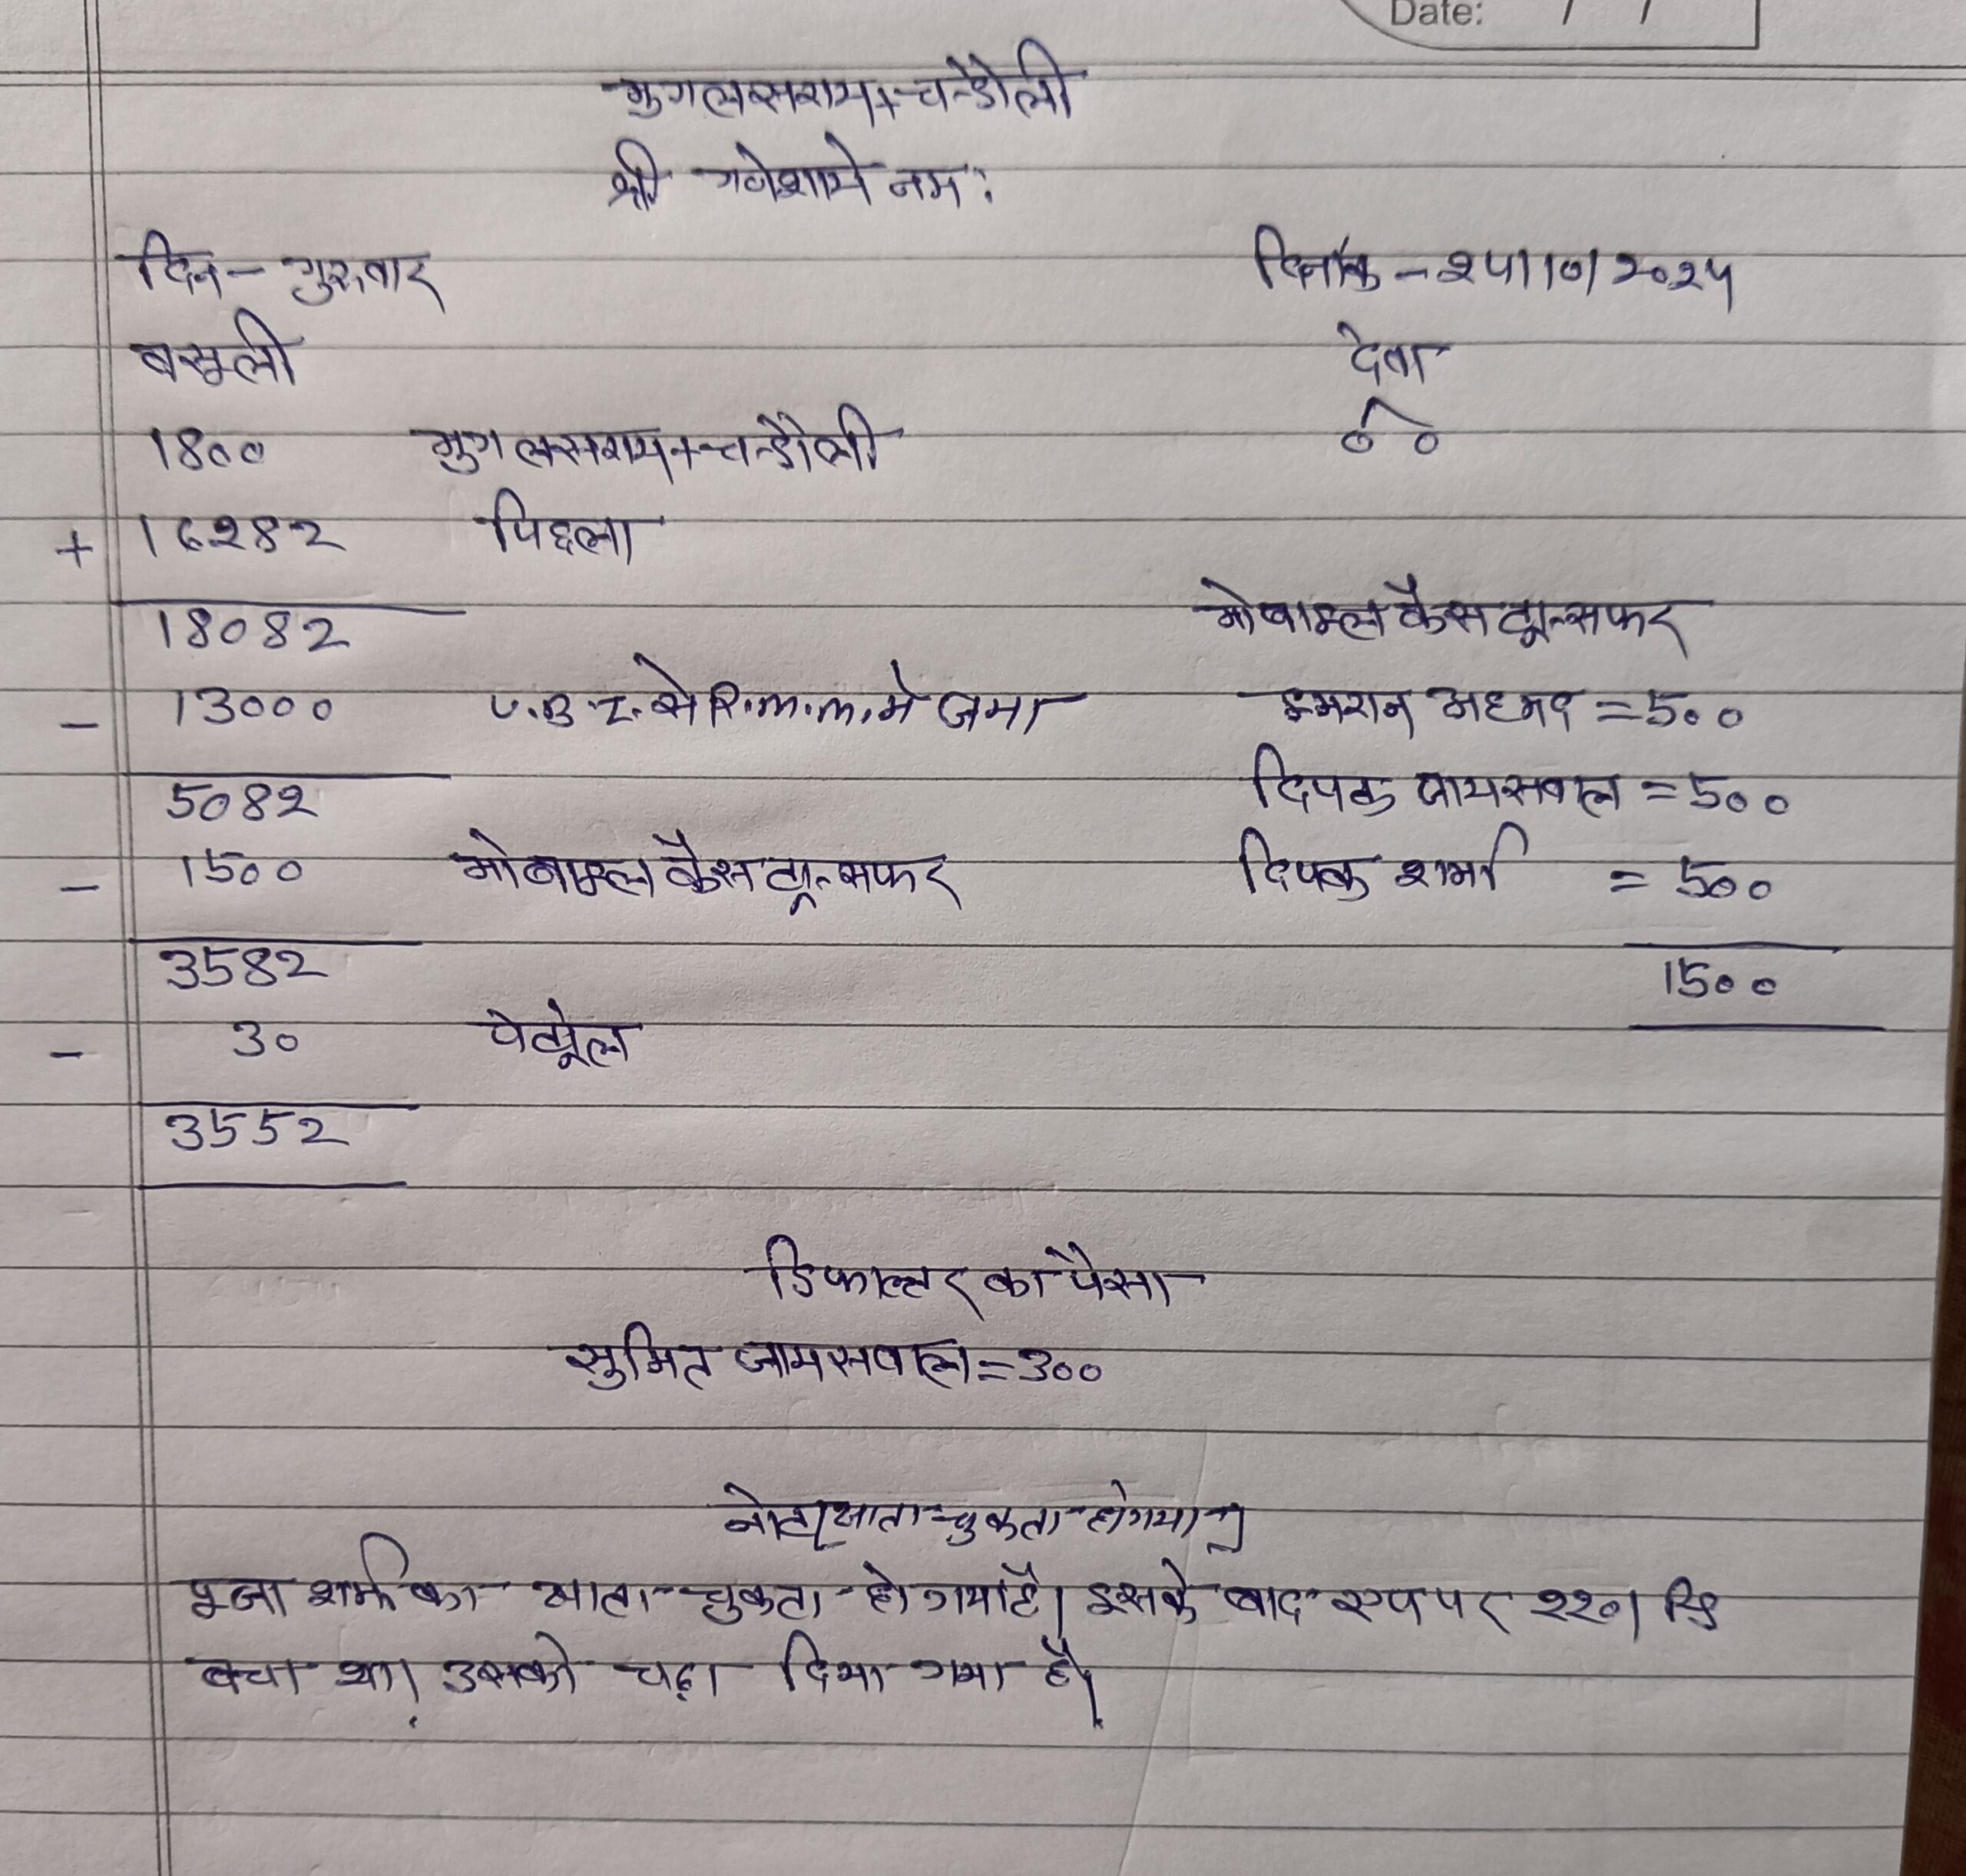 Date: / /
मुगलसराय+चन्दौली
श्री गणेशाये नम:
दिन- गुरुवार दिनांक -२५/१०/२०२५
बसूली देना
1800 मुगलसराय+चन्दौली ००
+ 16282 पिछला
18082 मोबाइल कैस ट्रान्सफर
- 13000 U.B.I. से R.m.m. मे जमा इमरान अहमद = 500
5082 दिपक जायसवाल = 500
- 1500 मोबाइल कैस ट्रान्सफर दिपक शर्मा = 500
3582 1500
- 30 पेट्रोल
3552
डिफाल्टर का पैसा
सुमित जायसवाल = 300
नोट(खाता चुकता हो गया)
पूजा शर्मा का खाता चुकता हो गया है। इसके बाद एप पर २२०)
बचा था। उसको चढ़ा दिया गया है।